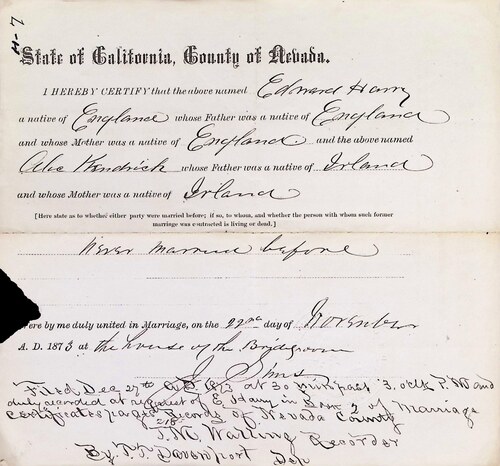 H-7
State of California, County of Nevada.
I HEREBY CERTIFY that the above named Edward Harry
a native of England whose Father was a native of England
and whose Mother was a native of England and the above named
Kendrick whose Father was a native of Irland
and whose Mother was a native of Irland
[Here state as to whether either party were married before; if so, to whom, and whether the person with whom such former
marriage was contracted is living or dead.]
Never married before
ere by me duly united in Marriage, on the 22nd day of November
A. D. 1873 at the house of the Bridgroom
J Sims
Filed Dec 27th A.D. 1873 at 30 min past 3 oclk P.M and
duly recorded at request of E Harry in Book 2 of Marriage
Certificates page 218 Records of Nevada County
J. M. Walling Recorder
By T. T. Davenport Dep